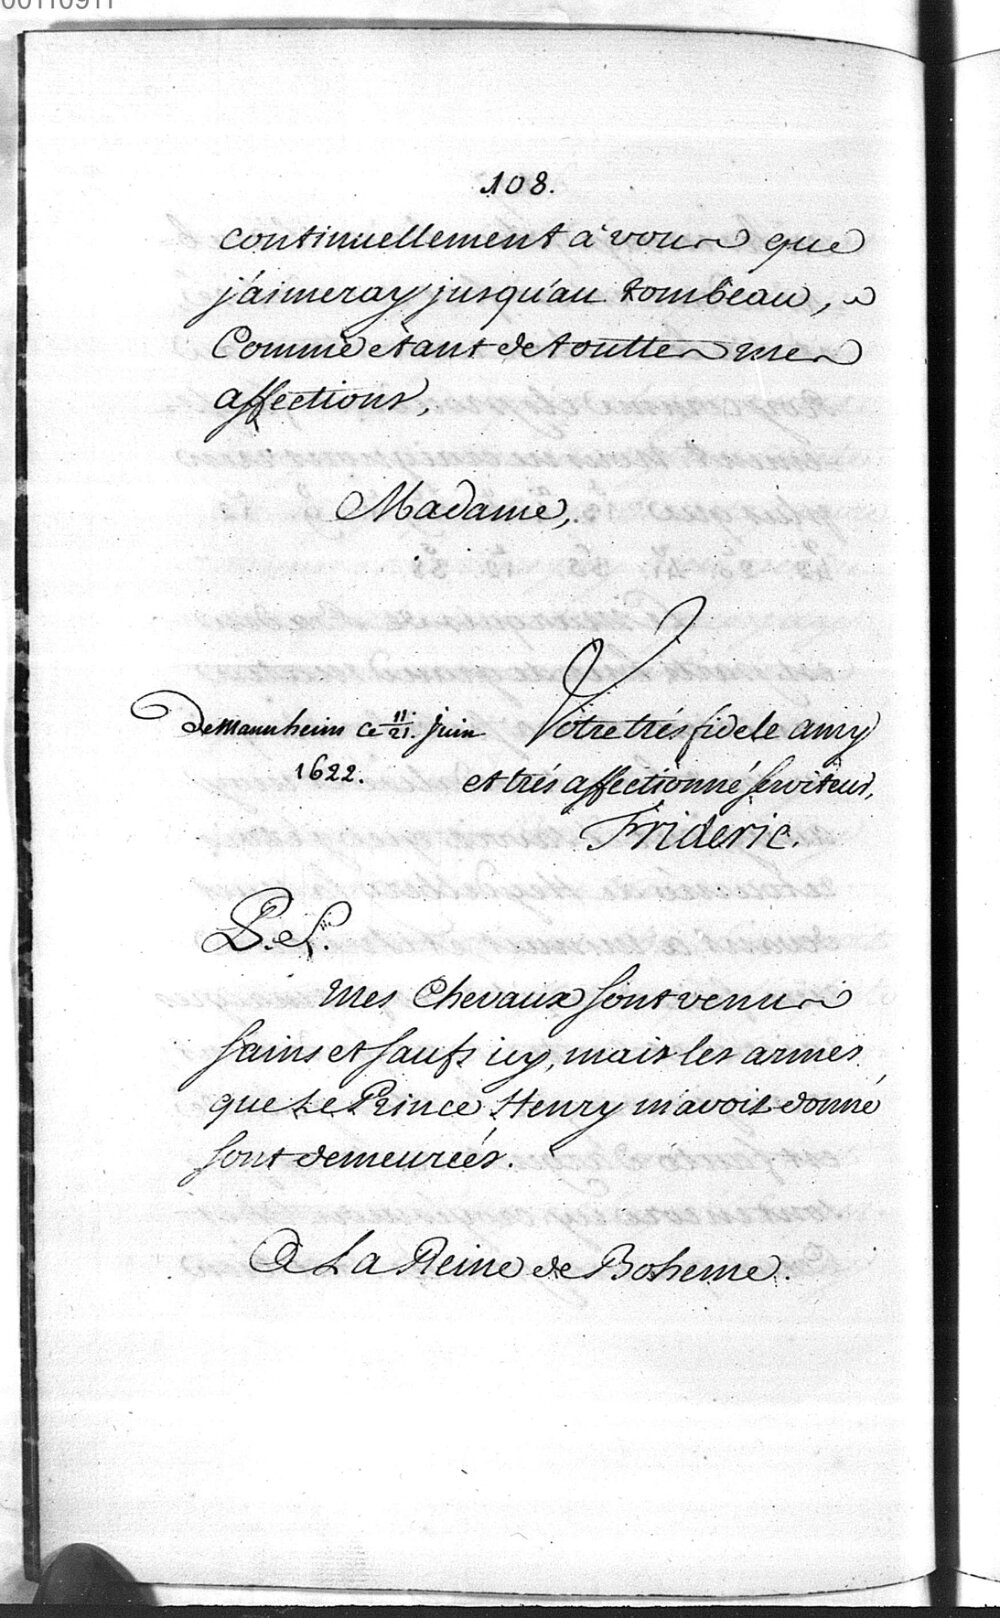 00110911
108.
continuellement à vous que
j'aimeray jusqu'au tombeau,
Comme etant de touttes mes
affections,
Madame,
De Mannheim ce 11/21. Juin
1622.
Vôtre trés fidele amy
et trés affectionné serviteur,
Frideric.
P. S.
Mes Chevaux sont venus
sains et saufs icy, mais les armes
que Le Prince Henry m'avoit donné
sont demeureés.
A La Reine de Boheme.